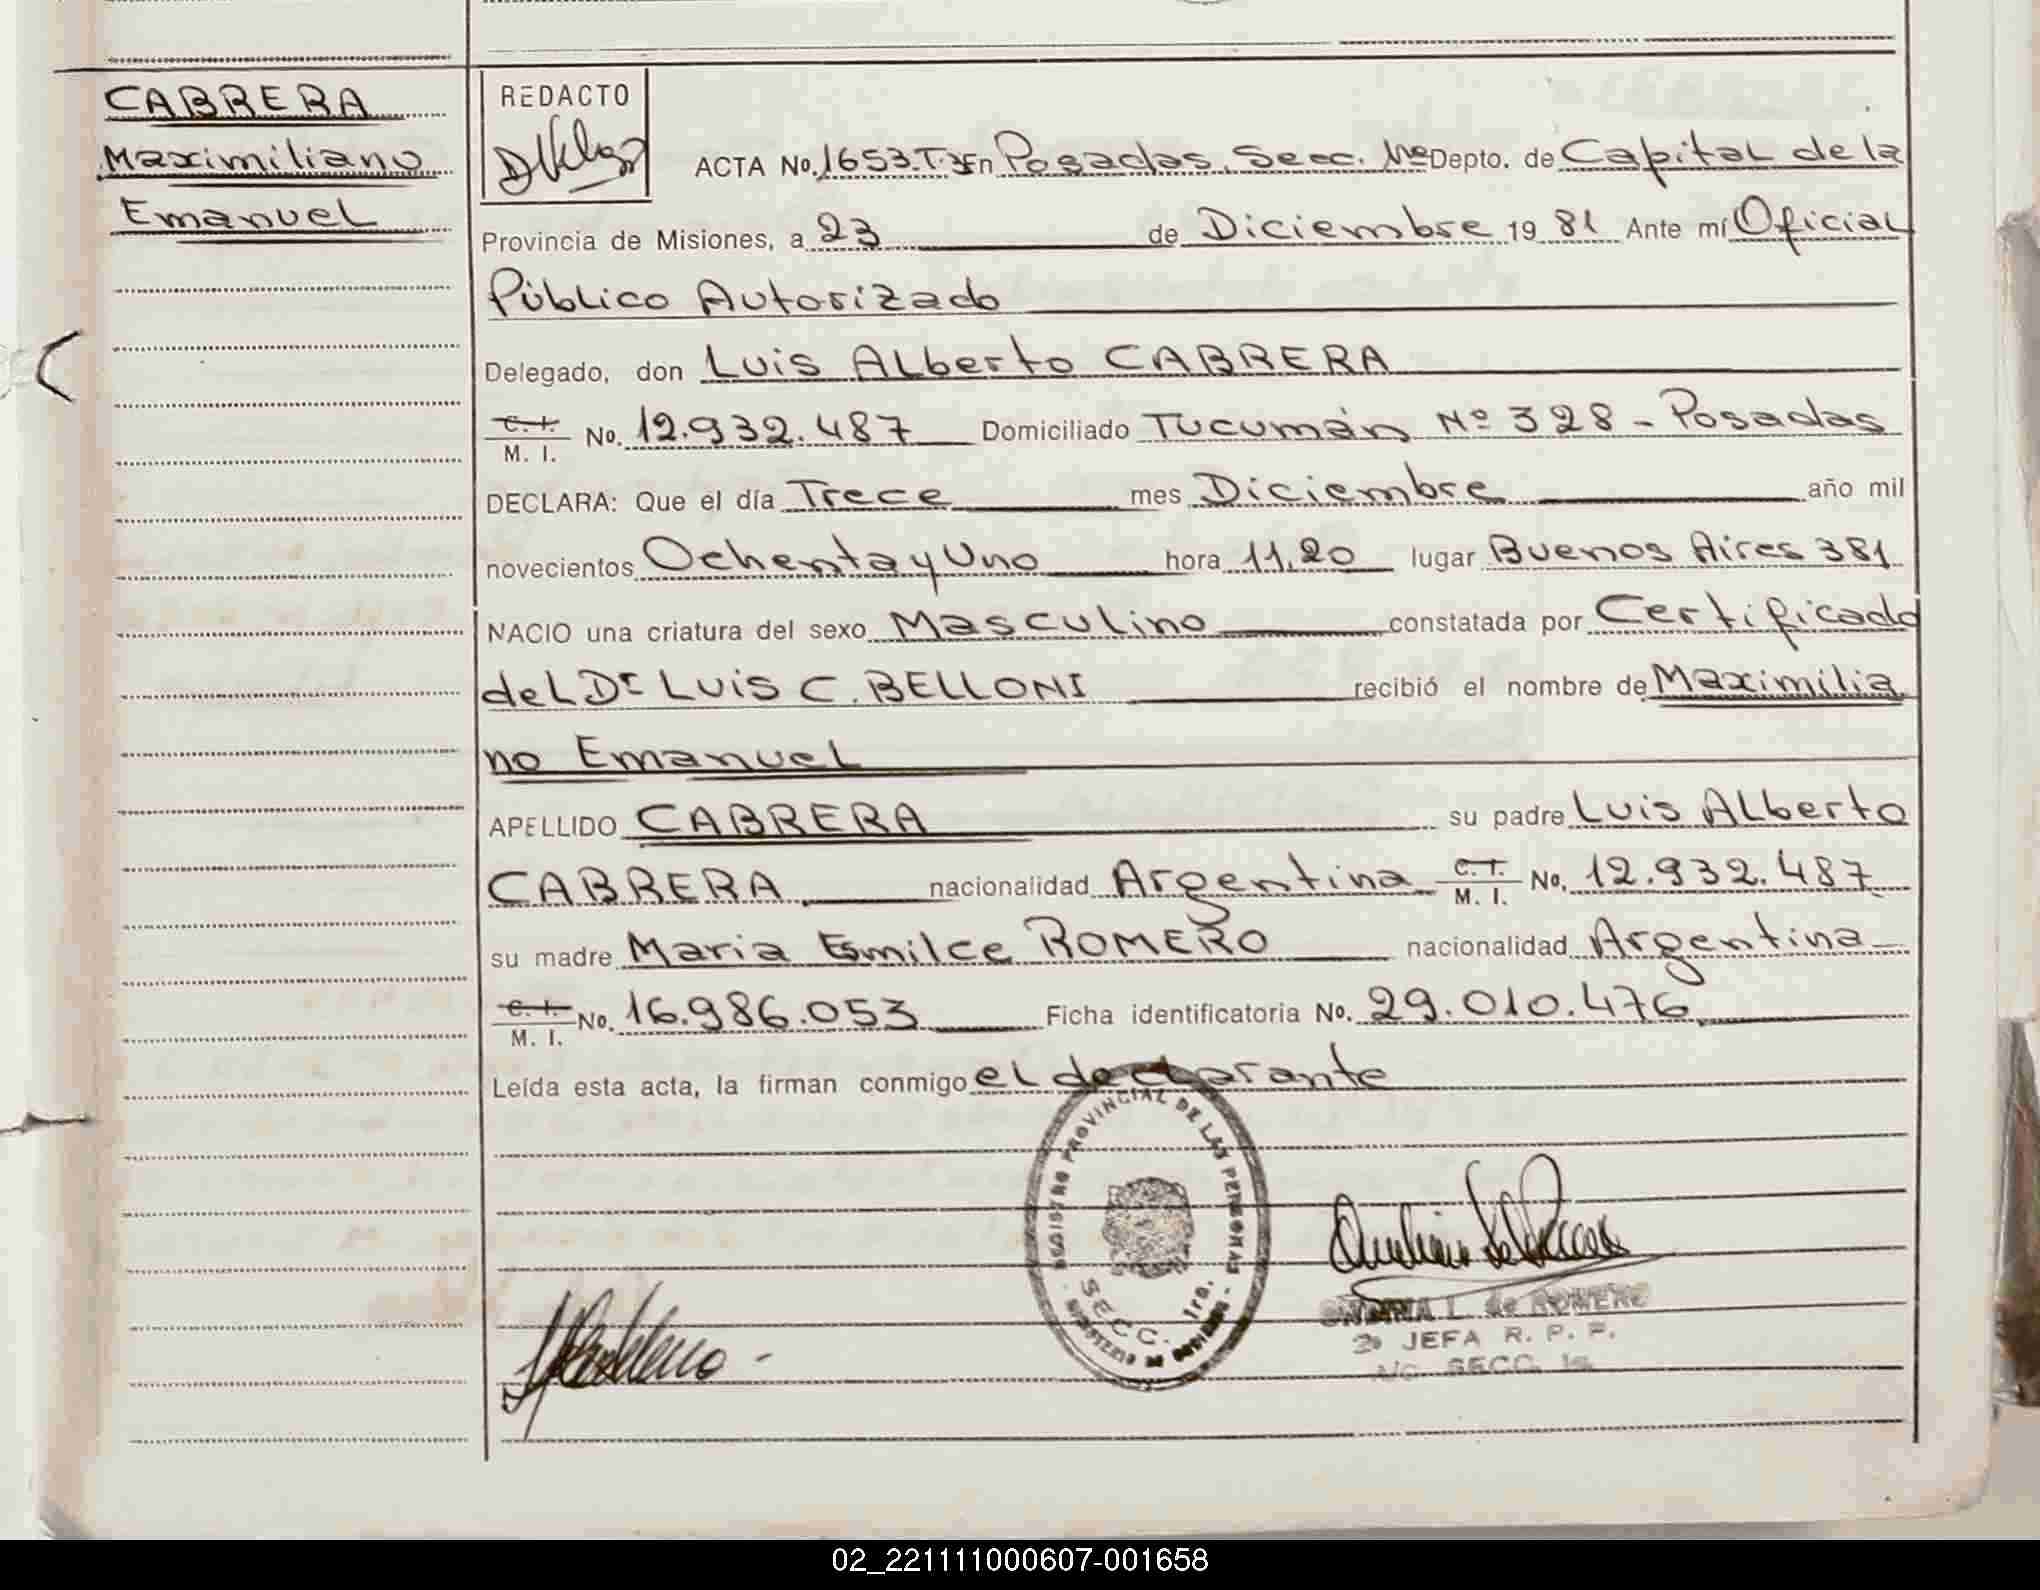 CABRERA
Maximiliano
Emanuel
REDACTO
ACTA No. 1653.T.3 En Posadas, Secc. 1ra Depto. de Capital de la
Provincia de Misiones, a 23 de Diciembre 19 81 Ante mí Oficial
Público Autorizado
Delegado, don Luis Alberto CABRERA
C. I.
M. I. No. 12.932.487 Domiciliado Tucumán Nº 328 - Posadas
DECLARA: Que el día Trece mes Diciembre año mil
novecientos Ochenta y Uno hora 11,20 lugar Buenos Aires 381
NACIO una criatura del sexo Masculino constatada por Certificado
del Dr Luis C. BELLONI recibió el nombre de Maximilia
no Emanuel
APELLIDO CABRERA su padre Luis Alberto
CABRERA nacionalidad Argentina C. I. M. I. No. 12.932.487
su madre Maria Esmilce ROMERO nacionalidad Argentina
C. I.
M. I. No. 16.986.053 Ficha identificatoria No. 29.010.476
Leída esta acta, la firman conmigo el declarante
REGISTRO PROVINCIAL DE LAS PERSONAS
SECC. 1ra.
MINISTERIO DE GOBIERNO
L. de ROMERO
JEFA R. P. P.
A/C SECC. 1a.
02_221111000607-001658